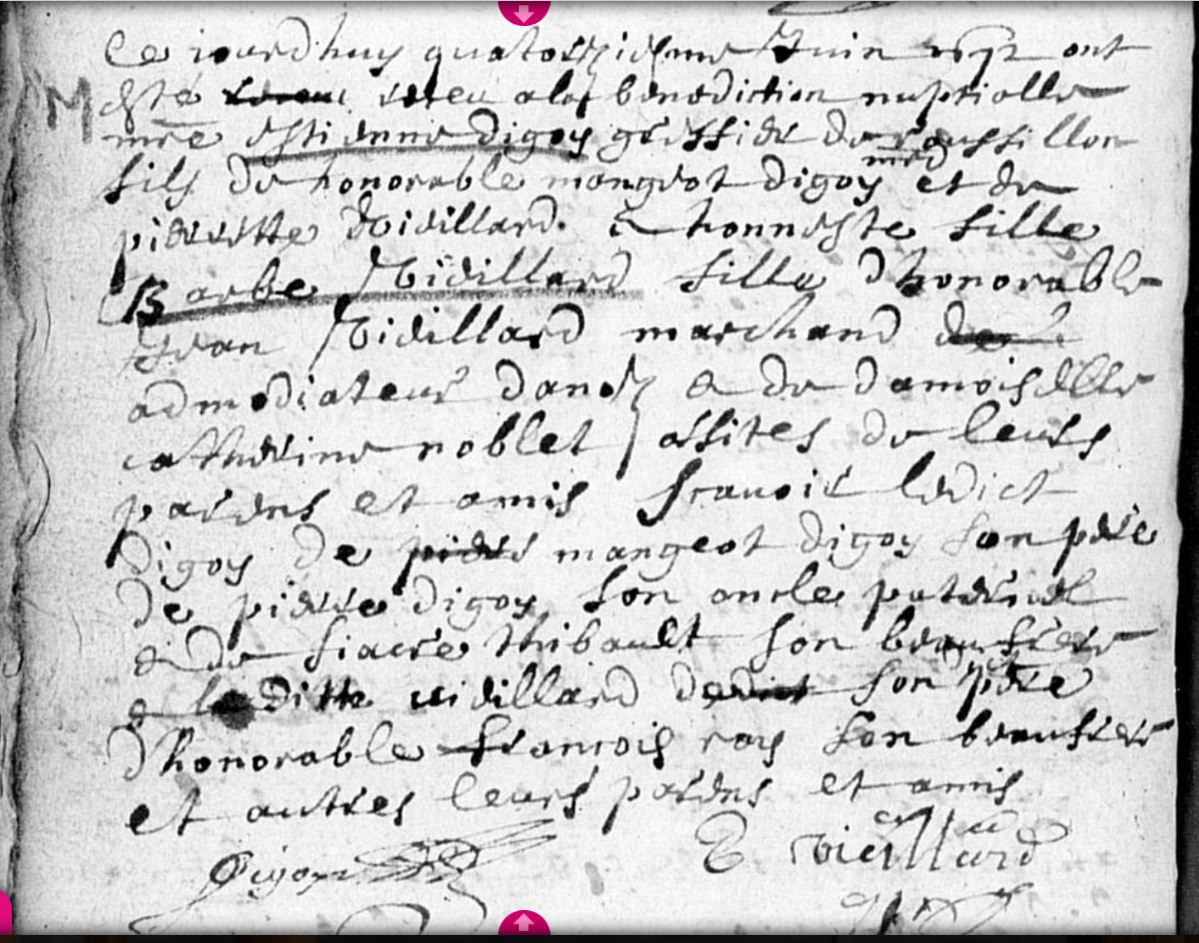 Ce iourdhuy quatorziesme Juin 1672 ont
M
esté receu a la benediction nuptialle
mre estienne digoy greffier de roussillon
fils de honorable mangeot digoy md et de
pierrette Vieillard. & honneste fille
Barbe Vieillard fille dhonorable
Jean Vieillard marchand
admodiateur danoz & de damoiselle
catherine noblet assites de leurs
parens et amis scauoir ledict
digoy de mangeot digoy son pere
de pierre digoy son oncle paternel
& de fiacre thibault son beaufrere
& la ditte vieillard dudict son pere
dhonorable francois roy son beaufrere
et autres leurs parens et amis
Digoy
E vieillard